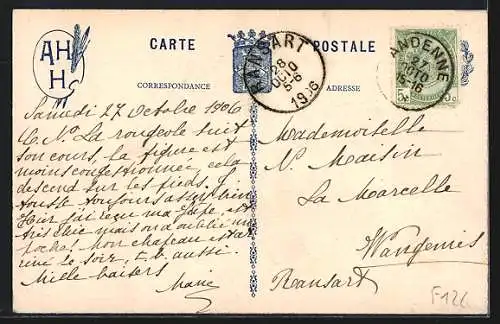 AH
H
CARTE POSTALE
CORRESPONDANCE
ADRESSE
RANSART
28
OCTO
5-6
1906
ANDENNE
27
OCTO
15-16
5c 5c
Samedi 27 Octobre 1906
C. N. La rougeole suit
son cours, la figure est
moins congestionnée, cela
descend sur les pieds. J.
tousse toujours assez bien
Hier j'ai reçu ma jupe, est
très bien mais on a oublié un
poche! Mon chapeau est ar
rivé le soir, t. b. aussi.
Mille baisers
Marie
Mademoiselle
N. Maisin
La Marcelle
Wangenies
Ransart
F126